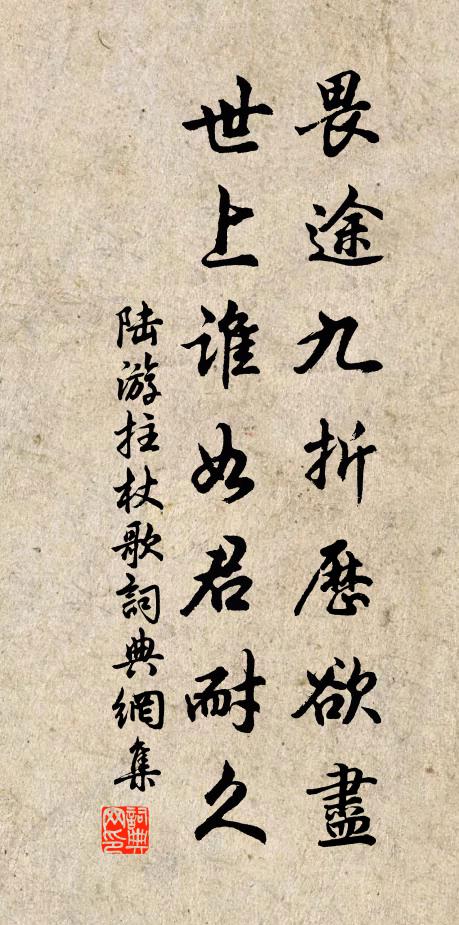 畏途九折歷欲盡
世上誰如君耐久
陸游拄杖歌詞典網集
詞典网印